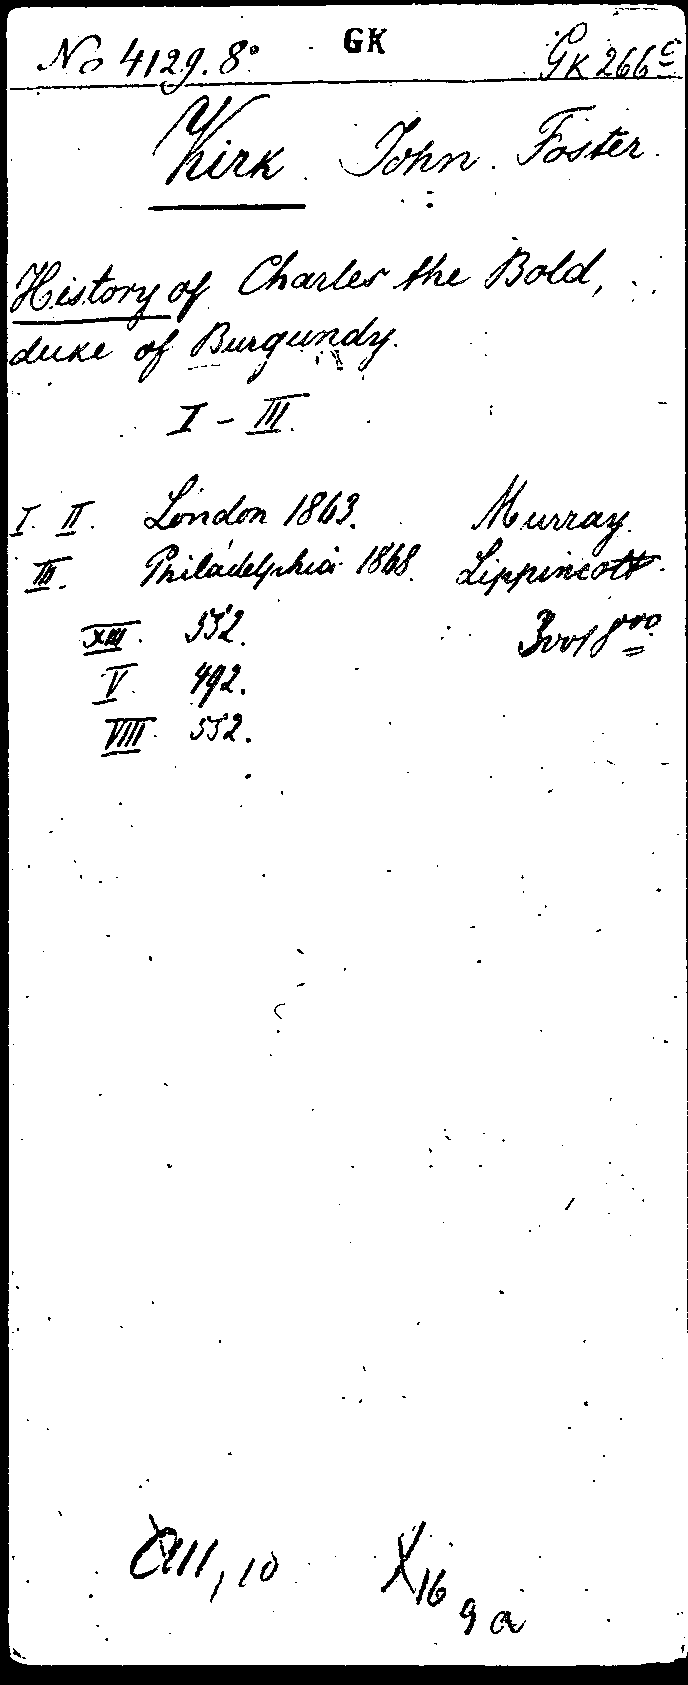 No 4129. 8° GK GK 266 c
Kirk John Foster.
History of Charles the Bold,
duke of Burgundy.
I - III.
I. II. London 1863. Murray.
III. Philadelphia 1868. Lippincott.
XIII. 552.
V. 492.
VIII. 552.
X 16
9 a